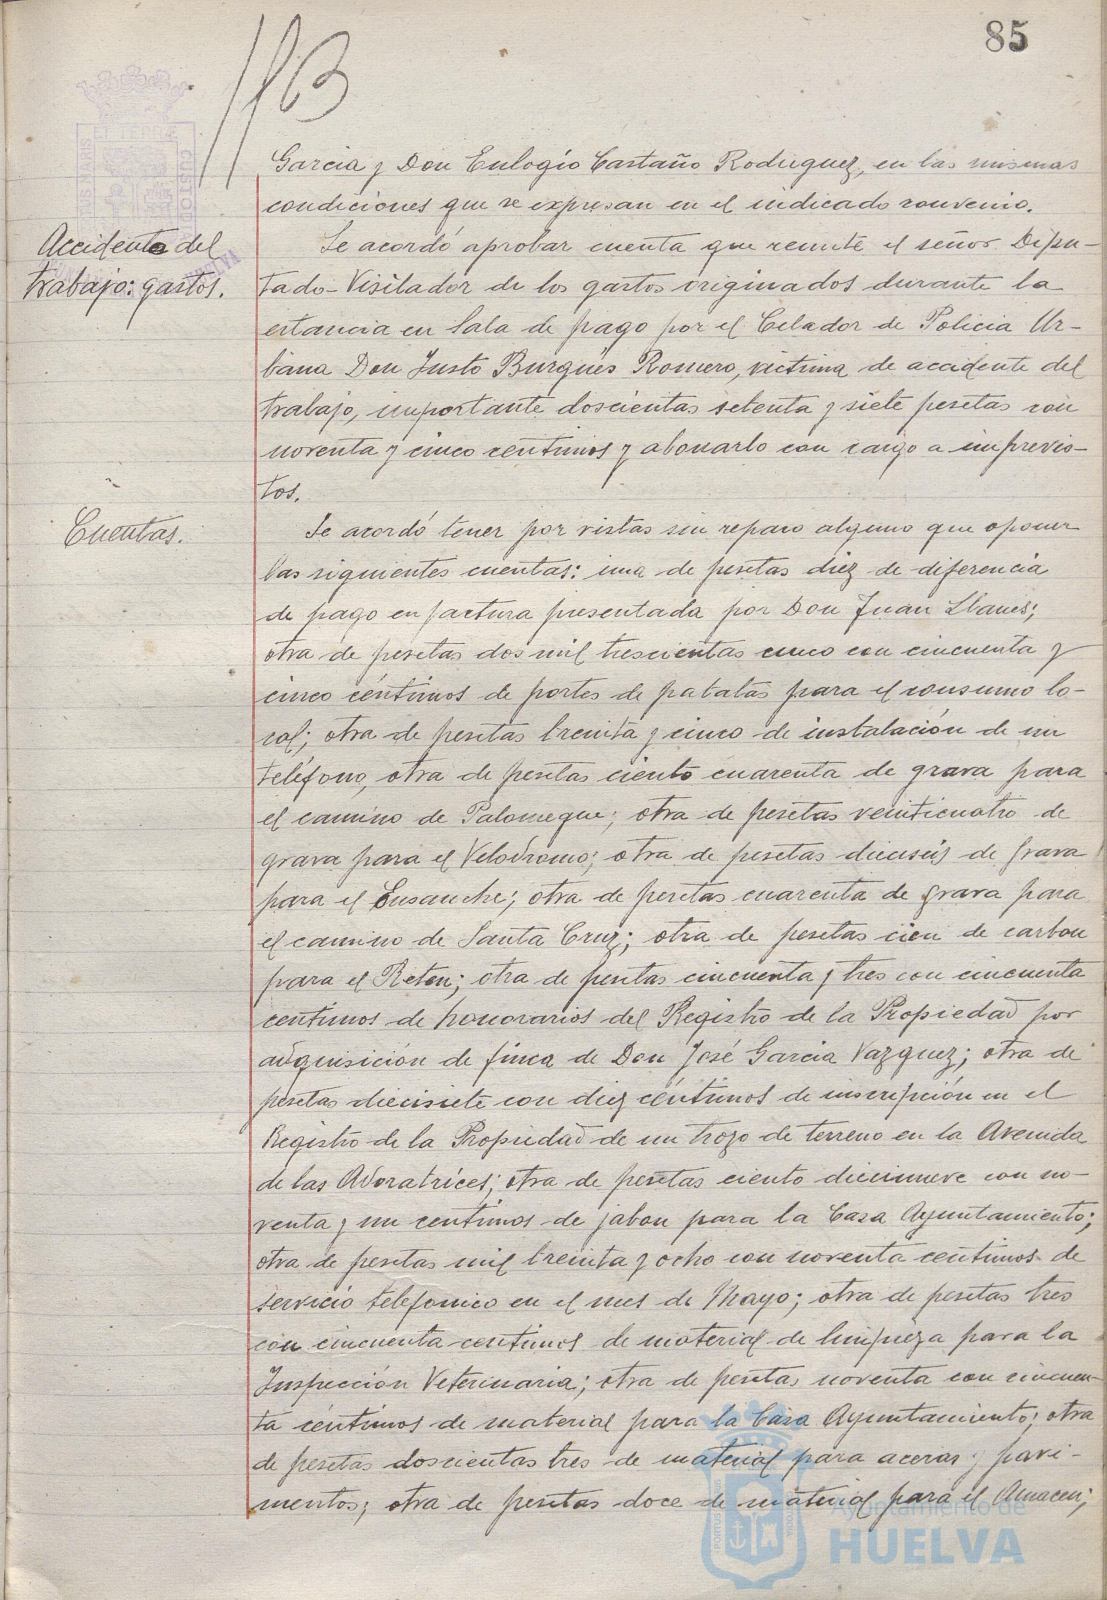 85
Garcia y Don Eulogio Castaño Rodriguez, en las mismas
condiciones que se expresan en el indicado convenio.
Accidente del
trabajo: gastos.
Se acordó aprobar cuenta que remite el señor Dipu-
tado-Visitador de los gastos originados durante la
estancia en Sala de pago por el Celador de Policia Ur-
bana Don Justo Burgués Romero, victima de accidente del
trabajo, importante doscientas setenta y siete pesetas con
noventa y cinco centimos y abonarlo con cargo a imprevis-
tos.
Cuentas.
Se acordó tener por vistas sin reparo alguno que oponer
las siguientes cuentas: una de pesetas diez de diferencia
de pago en factura presentada por Don Juan Llanes;
otra de pesetas dos mil trescientas cinco con cincuenta y
cinco céntimos de portes de patatas para el consumo lo-
cal; otra de pesetas treinta y cinco de instalación de un
teléfono, otra de pesetas ciento cuarenta de grava para
el camino de Palomeque; otra de pesetas veinticuatro de
grava para el Velodromo; otra de pesetas dieciseis de grava
para el Ensanche; otra de pesetas cuarenta de grava para
el camino de Santa Cruz; otra de pesetas cien de carbon
para el Reten; otra de pesetas cincuenta y tres con cincuenta
centimos de honorarios del Registro de la Propiedad por
adquisición de finca de Don José Garcia Vazquez; otra de
pesetas diecisiete con diez céntimos de inscripción en el
Registro de la Propiedad de un trozo de terreno en la Avenida
de las Adoratrices; otra de pesetas ciento diecinueve con no-
venta y un centimos de jabon para la Casa Ayuntamiento;
otra de pesetas mil treinta y ocho con noventa centimos de
servicio telefonico en el mes de Mayo; otra de pesetas tres
con cincuenta centimos de material de limpieza para la
Inspección Veterinaria; otra de pesetas noventa con cincuen-
ta céntimos de material para la Casa Ayuntamiento; otra
de pesetas doscientas tres de material para aceras y pavi-
mentos; otra de pesetas doce de material para el Almacen;
Ayuntamiento de
HUELVA